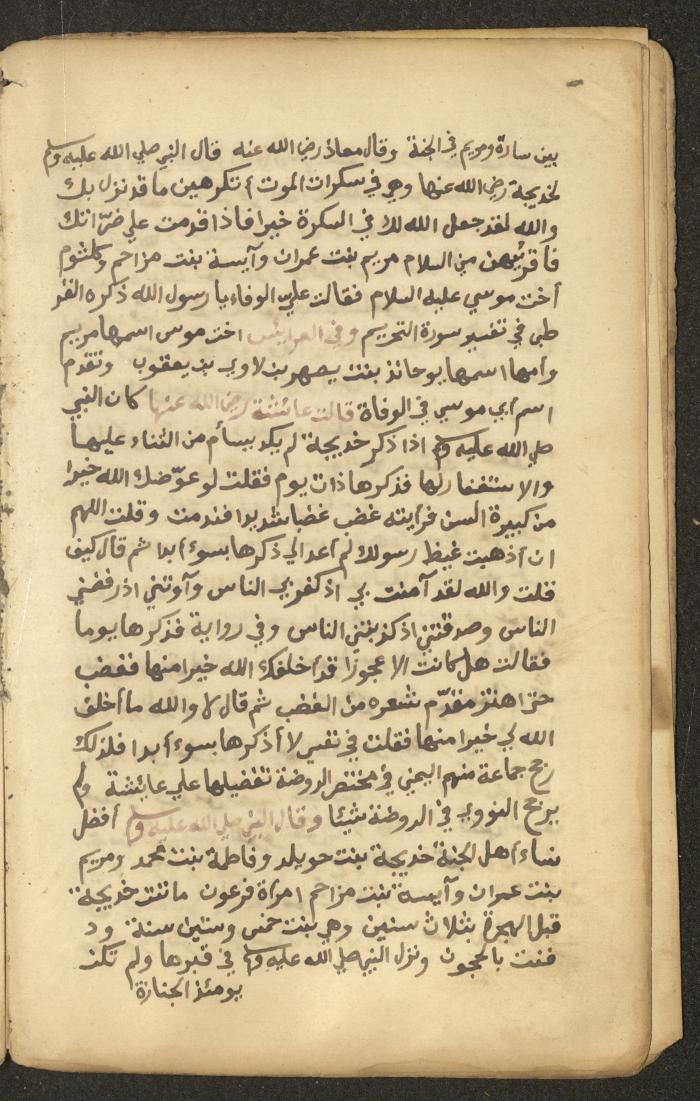 بين سارة ومريم في الجنة وقال معاذ رضي الله عنه قال النبي صلي الله عليه وسلم
لخديجة رضي الله عنها وهي في سكرات الموت أتكرهين ما قد نزل بك
والله لقد جعل الله لك في السكرة خيرا فاذا قدمت علي ضرّاتك
فاقرئيهن مني السلام مريم بنت عمران وآيسة بنت مزاحم وكلثوم
أخت موسي عليه السلام فقالت علي الوفاء يا رسول الله ذكره القر
طبي في تفسير سورة التحريم وفي العرايس اخت موسى اسمها مريم
وأمها اسمها يوحانذ بنت يصهر بن لاوي بن يعقوب وتقدم
اسم أبي موسي في الوفاة قالت عائشة رضي الله عنها كان النبي
صلي الله عليه وسلم اذا ذكر خديجة لم يكد يسأم من الثناء عليها
والاستغفار لها فذكرها ذات يوم فقلت لو عوّضك الله خيرا
من كبيرة السن فرأيته غضب غضبا شديدا فندمت وقلت اللهم
ان أذهبت غيظ رسولك لم أعد الي ذكرها بسوء أبدا ثم قال كيف
قلت والله لقد آمنت بي اذ كفر بي الناس وآوتني اذ رفضني
الناس وصدقتني اذ كذبتني الناس وفي رواية فذكرها يوما
فقالت هل كانت الا عجوزا قد أخلفك الله خيرا منها فغضب
حتى اهتز مقدّم شعره من الغضب ثم قال لا والله ما أخلف
الله لي خيرا منها فقلت في نفسي لا أذكرها بسوء أبدا فلذلك
رجح جماعة منهم اليمني في مختصر الروضة تفضيلها علي عايشة ولم
يرجح النووي في الروضة شيئا وقال النبي صلي الله عليه وسلم أفضل
نساء أهل الجنة خديجة بنت خويلد وفاطمة بنت محمد ومريم
بنت عمران وآيسة بنت مزاحم امرأة فرعون ماتت خديجة
قبل الهجرة بثلاث سنين وهي بنت خمس وستين سنة ود
فنت بالحجون ونزل النبي صلي الله عليه وسلم في قبرها ولم تكن
يومئذ الجنازة